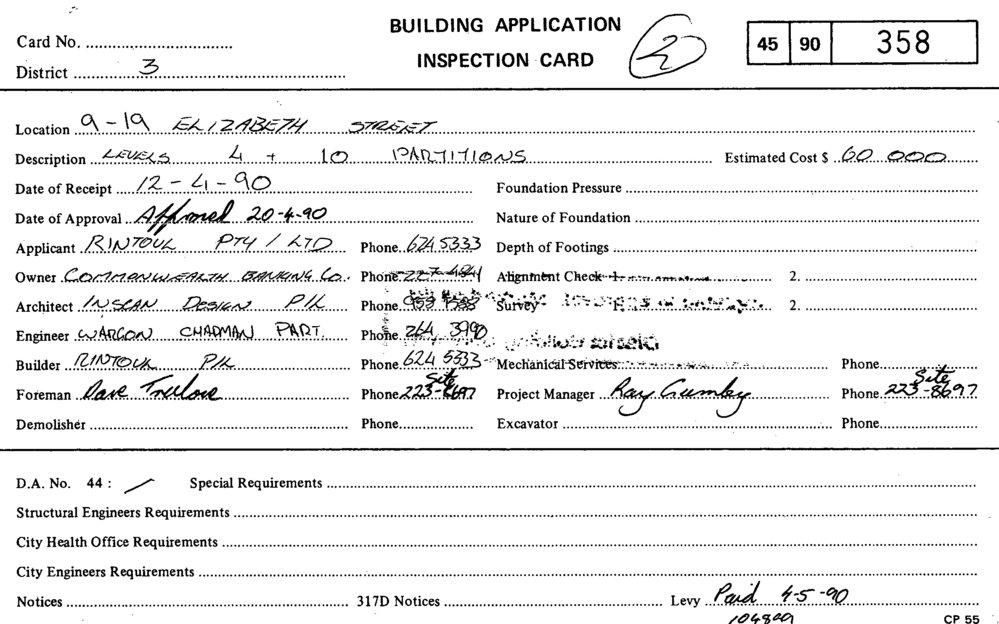 BUILDING APPLICATION
INSPECTION CARD
2
45 90 358
Card No.
District 3
Location 9-19 ELIZABETH STREET
Description LEVELS 4 + 10 PARTITIONS Estimated Cost $ 60 000
Date of Receipt 12-4-90 Foundation Pressure
Date of Approval Approved 20-4-90 Nature of Foundation
Applicant RINTOUL PTY / LTD Phone 624 5333 Depth of Footings
Owner COMMONWEALTH BANKING Co. Phone Alignment Check 1. 2.
Architect INSCAN DESIGN P/L Phone Survey 2.
Engineer WARGON CHAPMAN PART. Phone 264 3990
Builder RINTOUL P/L Phone 624 5333 Mechanical Services Phone
Foreman Dave Phone Site 223-8697 Project Manager Ray Gumley Phone Site 223-8697
Demolisher Phone Excavator Phone
D.A. No. 44 : / Special Requirements
Structural Engineers Requirements
City Health Office Requirements
City Engineers Requirements
Notices 317D Notices Levy Paid 4-5-90
CP 55